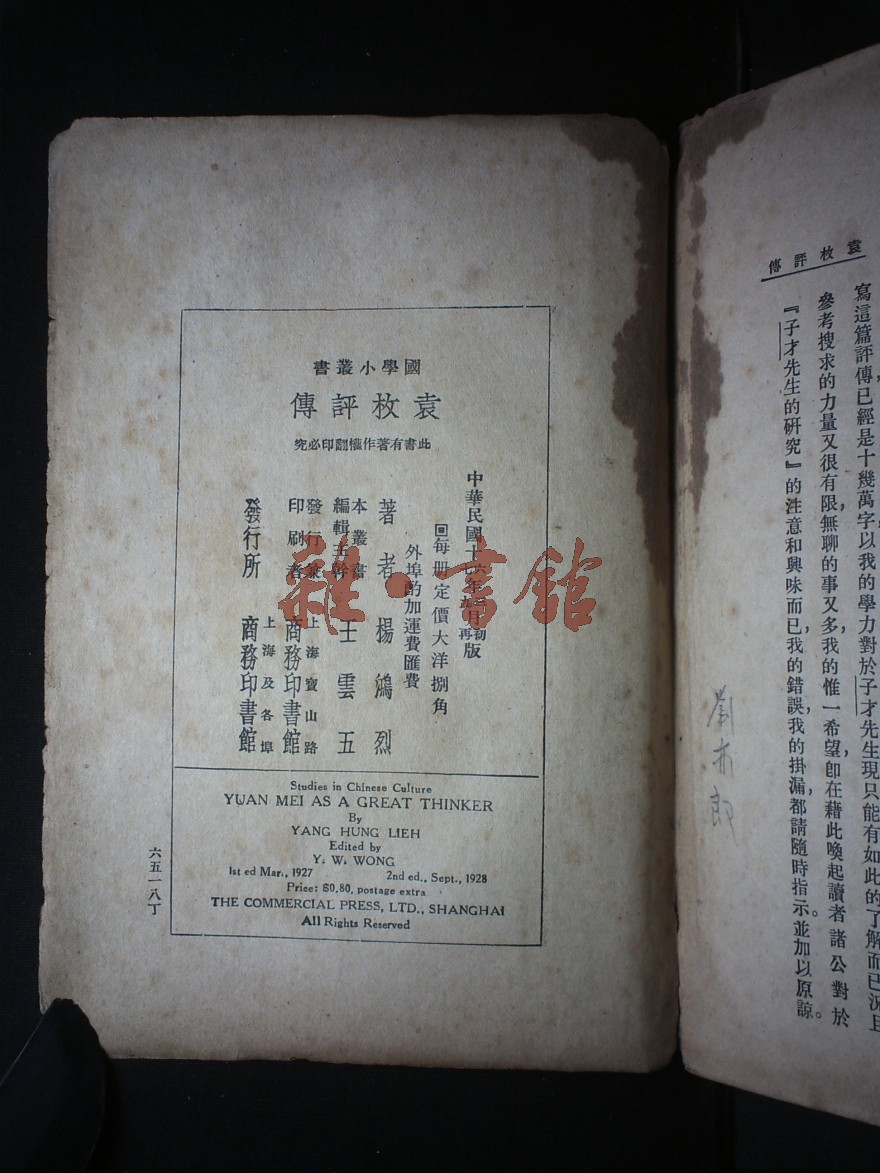 國學小叢書
袁枚評傳
此書有著作權翻印必究
中華民國十六年三月初版
十七年九月再版
回每册定價大洋捌角
外埠酌加運費匯費
著者 楊鴻烈
本叢書編輯主幹 王雲五
發行兼印刷者 上海寶山路 商務印書館
發行所 上海及各埠 商務印書館
Studies in Chinese Culture
YUAN MEI AS A GREAT THINKER
By
YANG HUNG LIEH
Edited by
Y. W. WONG
1st ed Mar., 1927 2nd ed., Sept., 1928
Price: $0.80, postage extra
THE COMMERCIAL PRESS, LTD., SHANGHAI
All Rights Reserved
六五一八丁
雜·書館
袁枚評傳
寫這篇評傳已經是十幾萬字，以我的學力對於子才先生現只能有如此的了解而已况且
參考搜求的力量又很有限，無聊的事又多，我的惟一希望，卽在藉此喚起讀者諸公對於
『子才先生的研究』的注意和興味而已，我的錯誤，我的掛漏，都請隨時指示。並加以原諒。